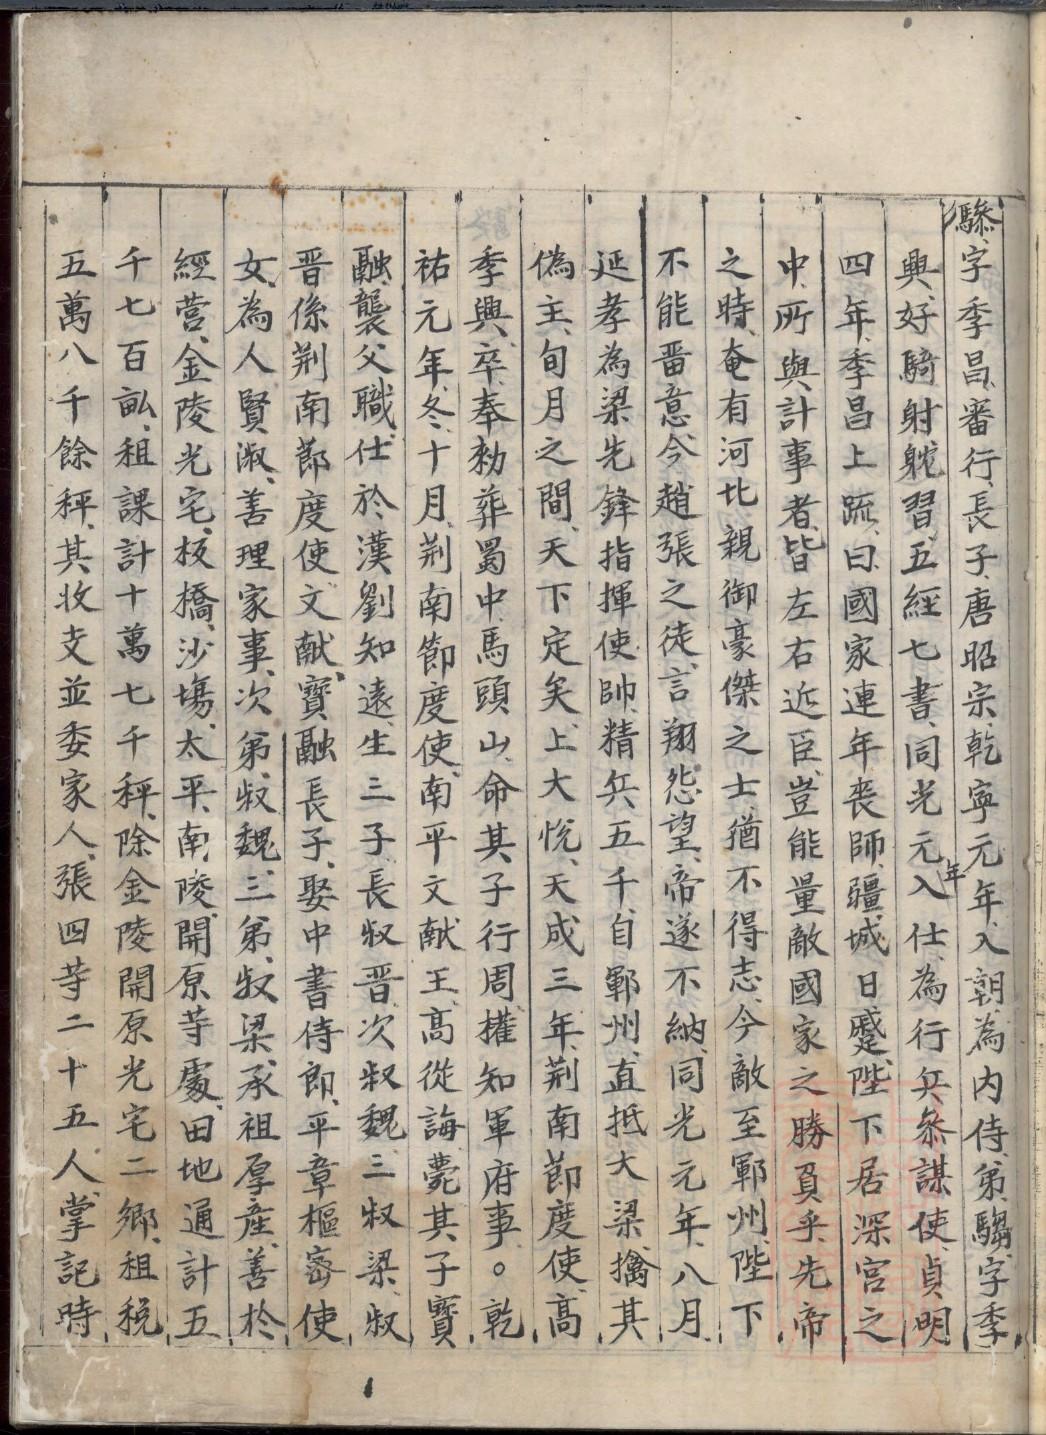 驂、字季昌、審行、長子、唐昭宗、乾寧元年、入朝、為內侍、弟、騶、字季
興、好騎射、躭習、五經七書、同光元年入仕、為行兵叅謀、使、貞明
四年、季昌上疏、曰、國家連年喪師、疆城日蹙、陛下居深宮之
中、所與計事者、皆左右近臣、豈能量敵國家之勝負乎、先帝
之時、奄有河北、親御豪傑之士、猶不得志、今敵至鄆州、陛下
不能畱意、今趙張之徒、言翔怨望、帝遂不納、同光元年、八月、
延孝為梁先鋒指揮使、帥、精兵五千、自鄆州、直抵大梁、擒其
偽主、旬月之間、天下定矣、上大悅、天成三年、荆南節度使、高
季興、卒、奉勑葬蜀中、馬頭山、命其子行周、權知軍府事、○乾
祐元年、冬、十月、荆南節度使、南平文献王、高從誨、薨、其子寶
融、襲父職、仕於漢劉知遠、生三子、長叔晋、次叔魏、三叔梁、叔
晋係荆南節度使文献、寶融長子、娶中書侍郎、平章樞宻使
女、為人賢淑、善理家事、次弟、叔魏、三弟、叔梁、承祖厚產、善於
經营、金陵光宅、板橋、沙塲、太平、南陵、開原等處、田地通計五
千七百畆、租課計十萬七千秤、除金陵開原光宅二鄉、租税
五萬八千餘秤、其收支並委家人、張四等二十五人、掌記時